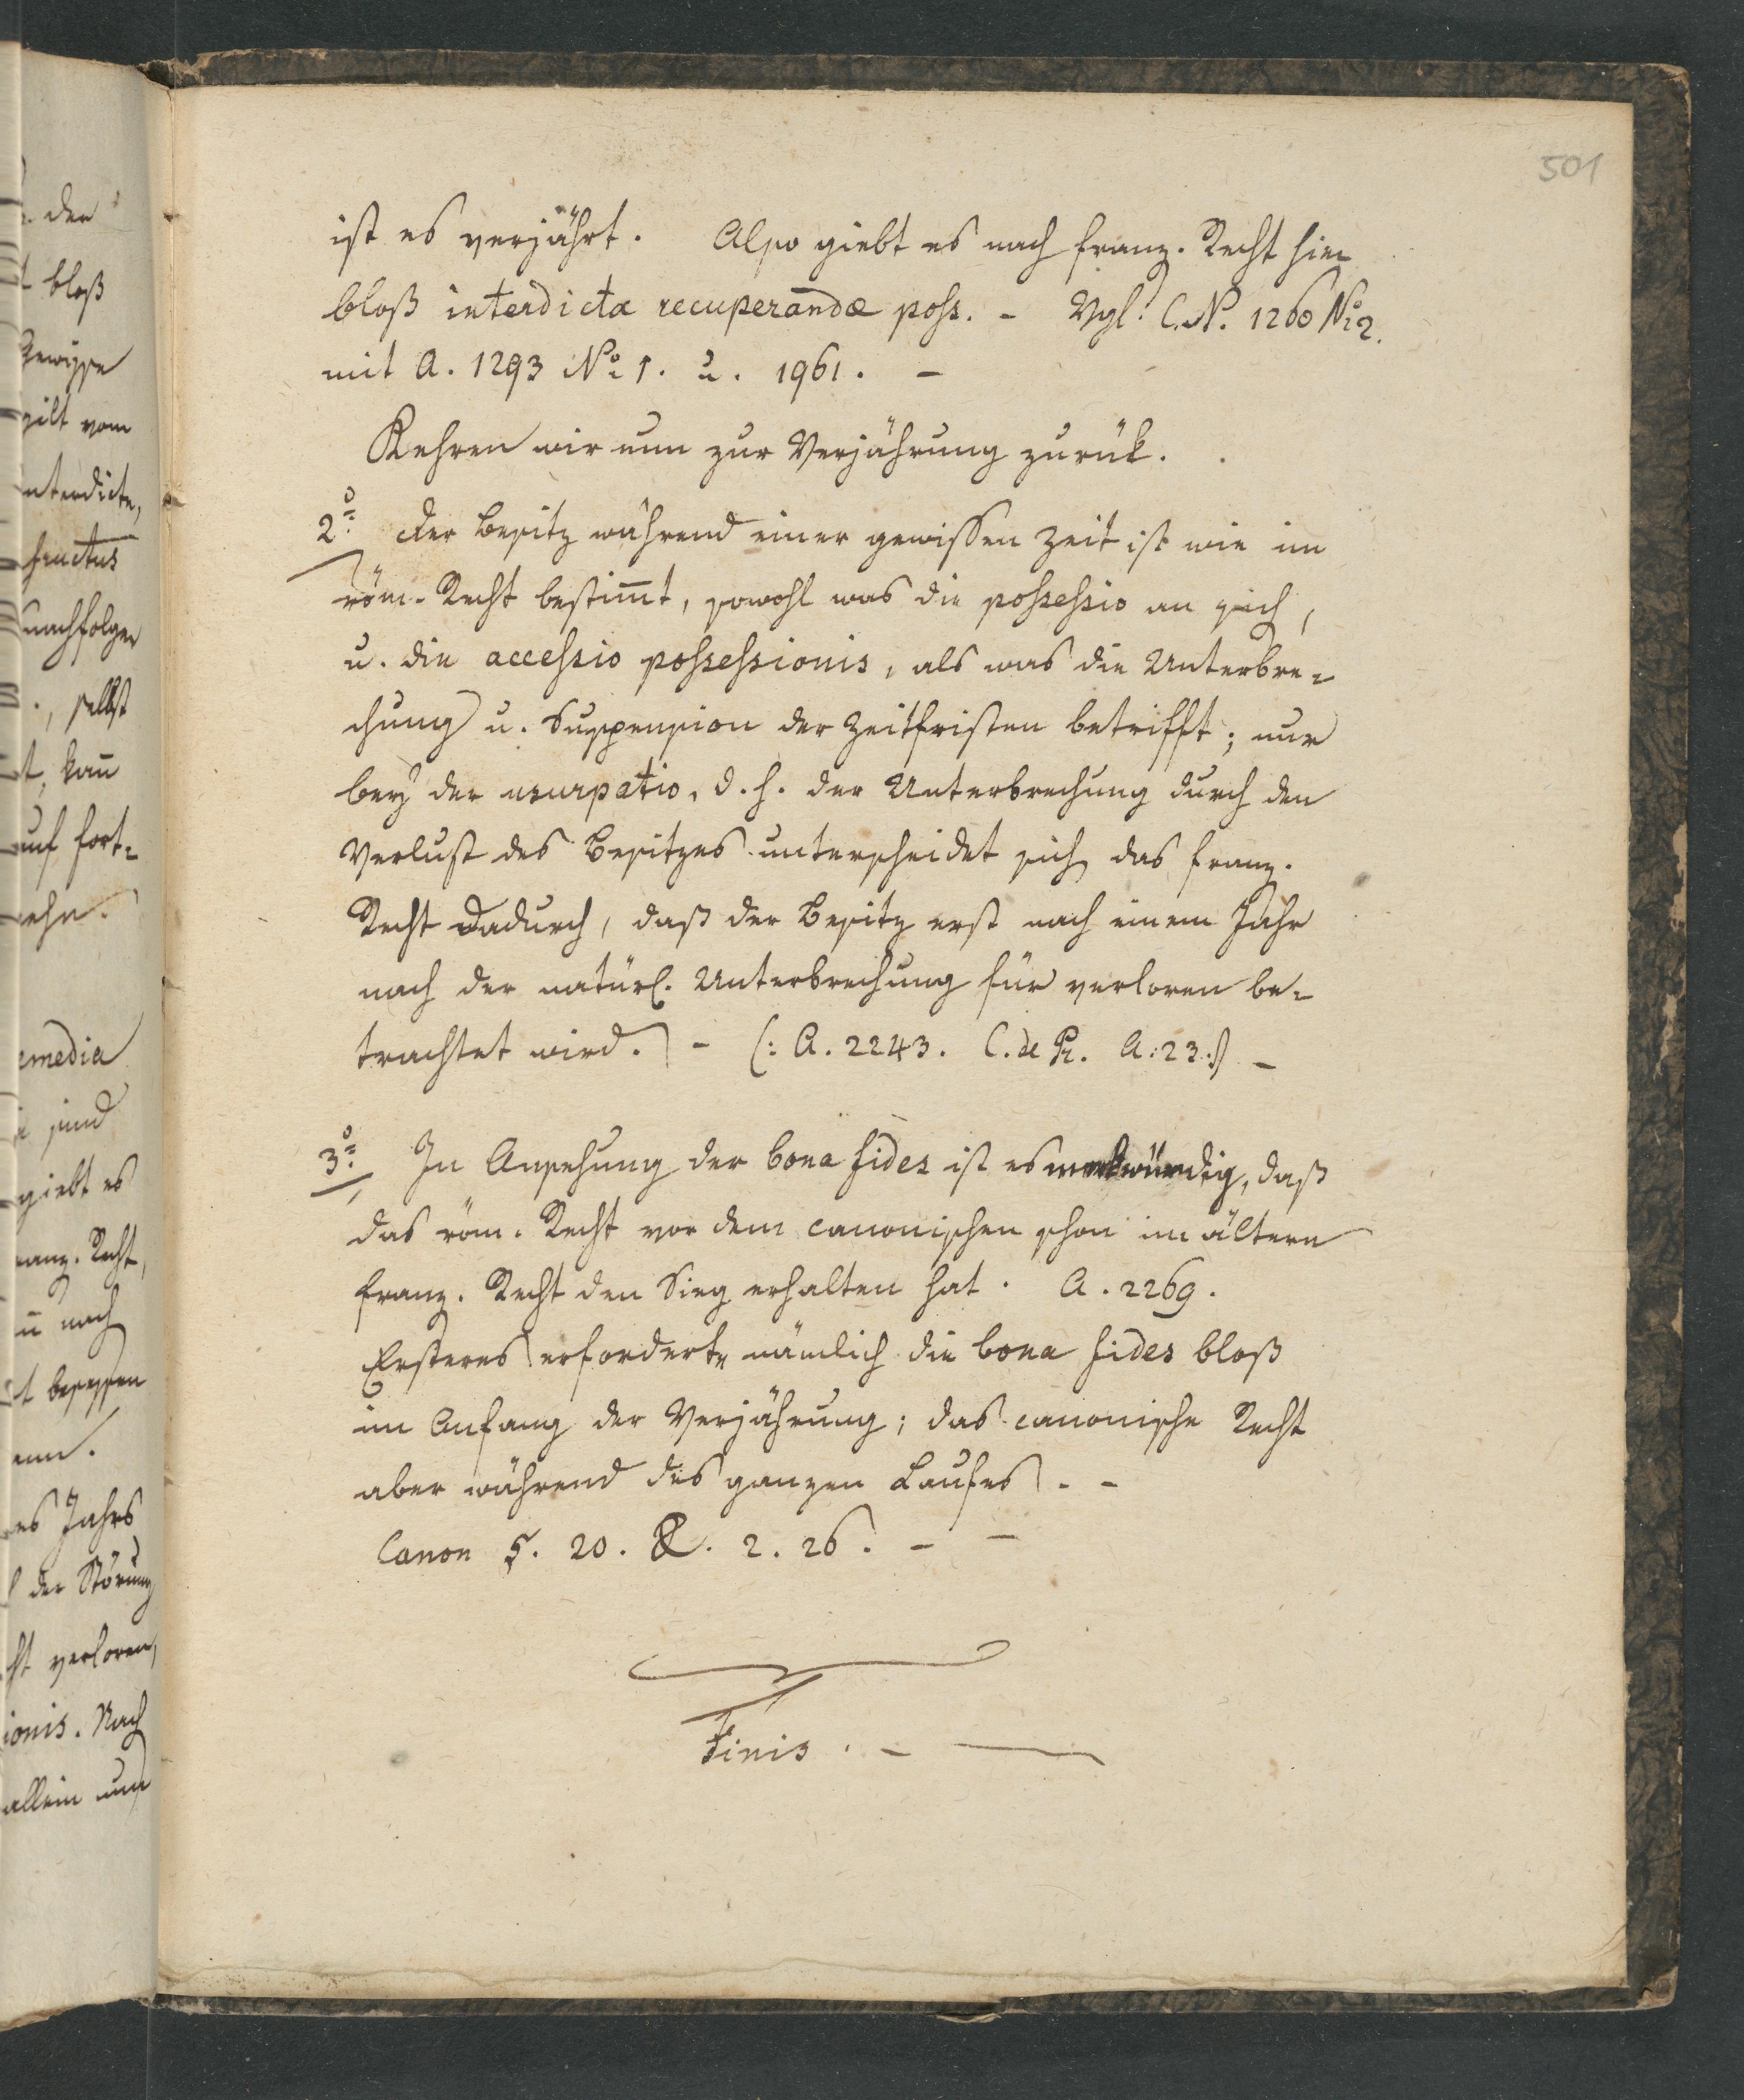 501
ist es verjährt. Also giebt es nach franz. Recht hier
bloß interdicta recuperandæ poss. - Vgl. C.N. 1260 No 2.
mit A. 1293 No 1. u. 1961. -
Kehren wir nun zur Verjährung zurük.
2o. Der Besitz während einer gewissen Zeit ist wie im
röm. Recht bestim̄t, sowohl was die possessio an sich,
u. die accessio possessionis, als was die Unterbre-
chung u. Suspension der Zeitfristen betrifft; nur
bey der usurpatio, d. h. der Unterbrechung durch den
Verlust des Besitzes unterscheidet sich das franz.
Recht dadurch, daß der Besitz erst nach einem Jahr
nach der natürl. Unterbrechung für verloren be-
trachtet wird. - (: A. 2243. C. de Pr. A: 23 :) -
3o. In Ansehung der bona fides ist es merkwürdig, daß
das röm. Recht vor dem canonischen schon im ältern
franz. Recht den Sieg erhalten hat. A. 2269.
Ersteres erforderte nämlich die bona fides bloß
im Anfang der Verjährung; das canonische Recht
aber während des ganzen Laufes. -
Canon 5. 20. X. 2. 26. - -
Finis. - -
der
bloß
Gewisse
gilt vom
nterdicte,
fructus
nachfolger
., selbst
t, kan̄
auf fort-
ehn.
emedia
sind
giebt es
ranz. Recht,
n̄ nach
t besessen
enn.
es Jahrs
der Störung
ht verloren,
ionis. Nach
allein nun